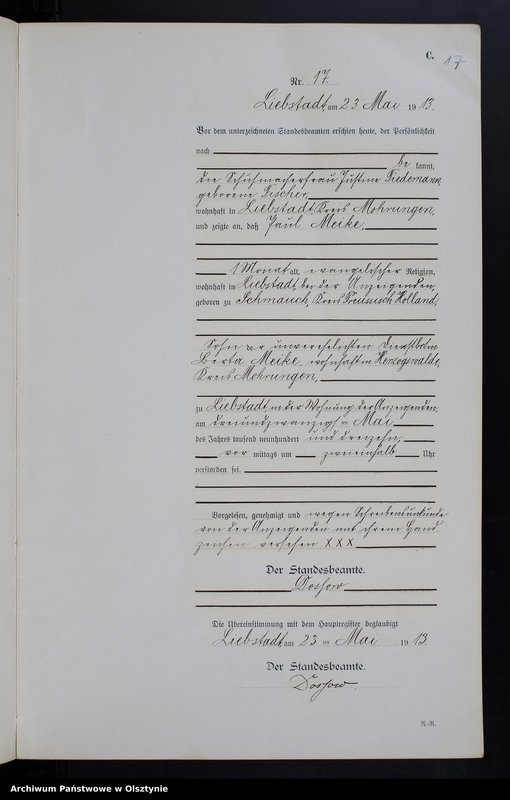 C.
17
Nr. 17.
Liebstadt, am 23 Mai 1913.
Vor dem unterzeichneten Standesbeamten erschien heute, der Persönlichkeit
nach
be kannt,
die Schuhmacherfrau Justine Tiedemann,
geborene Fischer,
wohnhaft in Liebstadt, Kreis Mohrungen,
und zeigte an, daß Paul Meike,
1 Monat alt, evangelischer Religion,
wohnhaft in Liebstadt, bei der Anzeigenden,
geboren zu Schmauch, Kreis Preussisch Holland,
Sohn der unverehelichten Dienstbotin
Berta Meike, wohnhaft in Herzogswalde,
Kreis Mohrungen,
zu Liebstadt, in der Wohnung der Anzeigenden,
am dreiundzwanzigsten Mai
des Jahres tausend neunhundert und dreizehn,
vor mittags um zweieinhalb Uhr
verstorben sei.
Vorgelesen, genehmigt und wegen Schreibensunkunde
von der Anzeigenden mit ihrem Hand
zeichen versehen XXX
Der Standesbeamte.
Dossow
Die Übereinstimmung mit dem Hauptregister beglaubigt
Liebstadt, am 23 ten Mai 1913.
Der Standesbeamte.
Dossow.
N.-R.
Archiwum Państwowe w Olsztynie